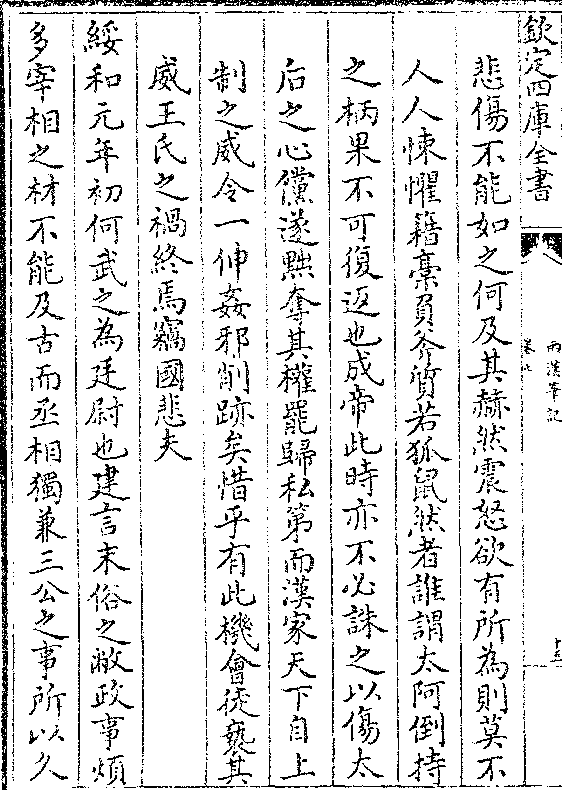 欽定四庫全書
兩漢筆記
卷七
悲傷不能如之何及其赫然震怒欲有所為則莫不
人人悚懼籍藁負斧質若狐鼠然者誰謂太阿倒持
之柄果不可復返也成帝此時亦不必誅之以傷太
后之心儻遂黜奪其權罷歸私第而漢家天下自上
制之威令一伸姦邪削跡矣惜乎有此機會徒褻其
威王氏之禍終焉竊國悲夫
綏和元年初何武之為廷尉也建言末俗之敝政事煩
多宰相之材不能及古而丞相獨兼三公之事所以久